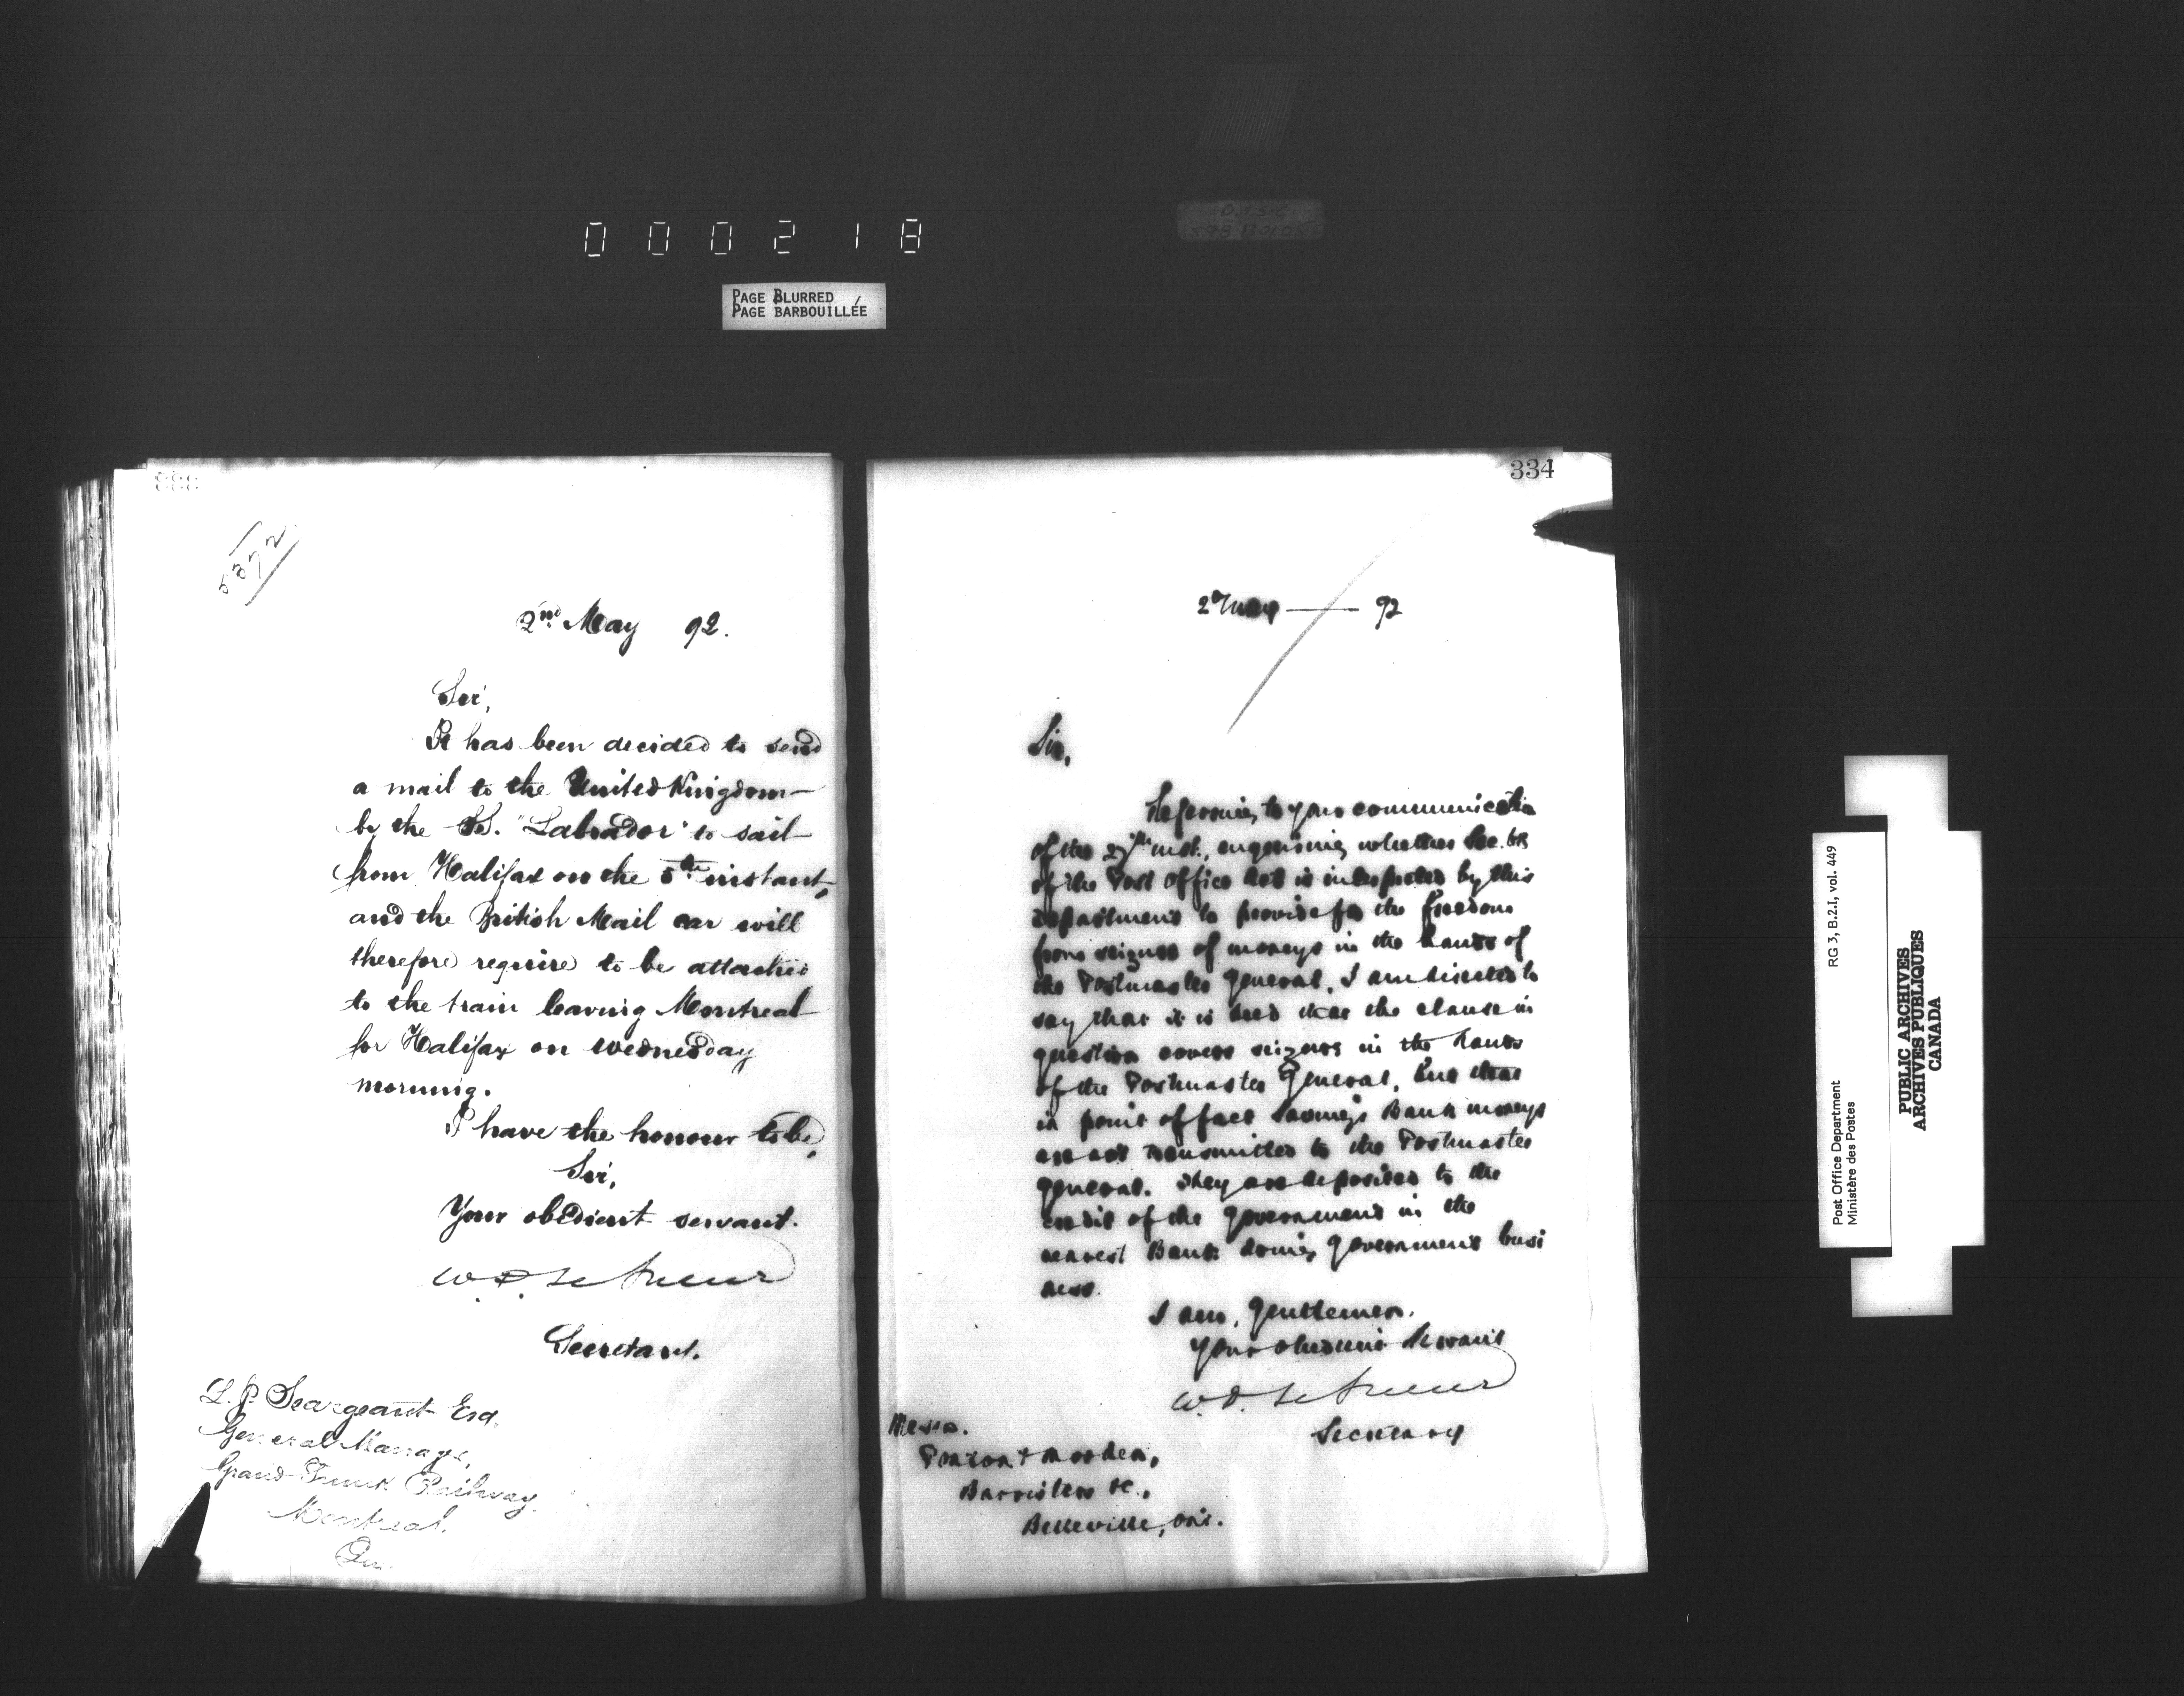 000218
PAGE BLURRED
PAGE BARBOUILLÉE
333
5372
2nd May 92.
Sir,
It has been decided to send
a mail to the United Kingdom
by the SS. "Labrador" to sail
from Halifax on the 5th instant,
and the British Mail car will
therefore require to be attached
to the train leaving Montreal
for Halifax on Wednesday
morning.
I have the honour to be,
Sir,
Your obedient servant.
W. D. LeSueur
Secretary.
L. J. Seargeant Esq.
General Manager,
Grand Trunk Railway,
Montreal.
Que
334
2d May — 92
Sir,
Referring to your communication
of the 27th inst., enquiring whether Sec.
of the Post Office Act is interpreted by this
department to provide for the freedom
from seizure of moneys in the hands of
the Postmaster General, I am directed to
say that it is held that the clause in
question covers seizure in the hands
of the Postmaster General, but that
in point of fact Savings Bank moneys
are not transmitted to the Postmaster
General. They are deposited to the
credit of the Government in the
nearest Bank doing Government busi
ness.
I am, Gentlemen,
Your obedient Servant
W. D. LeSueur
Secretary
Messrs.
Barristers &c.,
Belleville, Ont.
Post Office Department RG 3, B.2.I, vol. 449
Ministère des Postes
PUBLIC ARCHIVES
ARCHIVES PUBLIQUES
CANADA